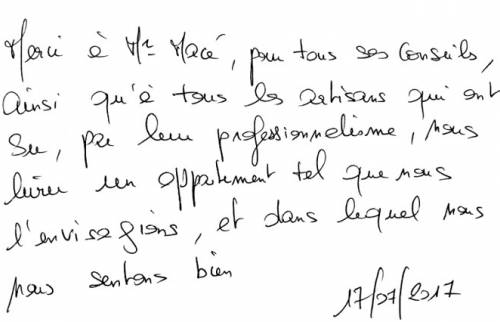 Merci à Mr Macé, pour tous ses Conseils,
ainsi qu'à tous les artisans qui ont
su, par leur professionnalisme, nous
livrer un appartement tel que nous
l'envisagions, et dans lequel nous
nous sentons bien
17/07/2017